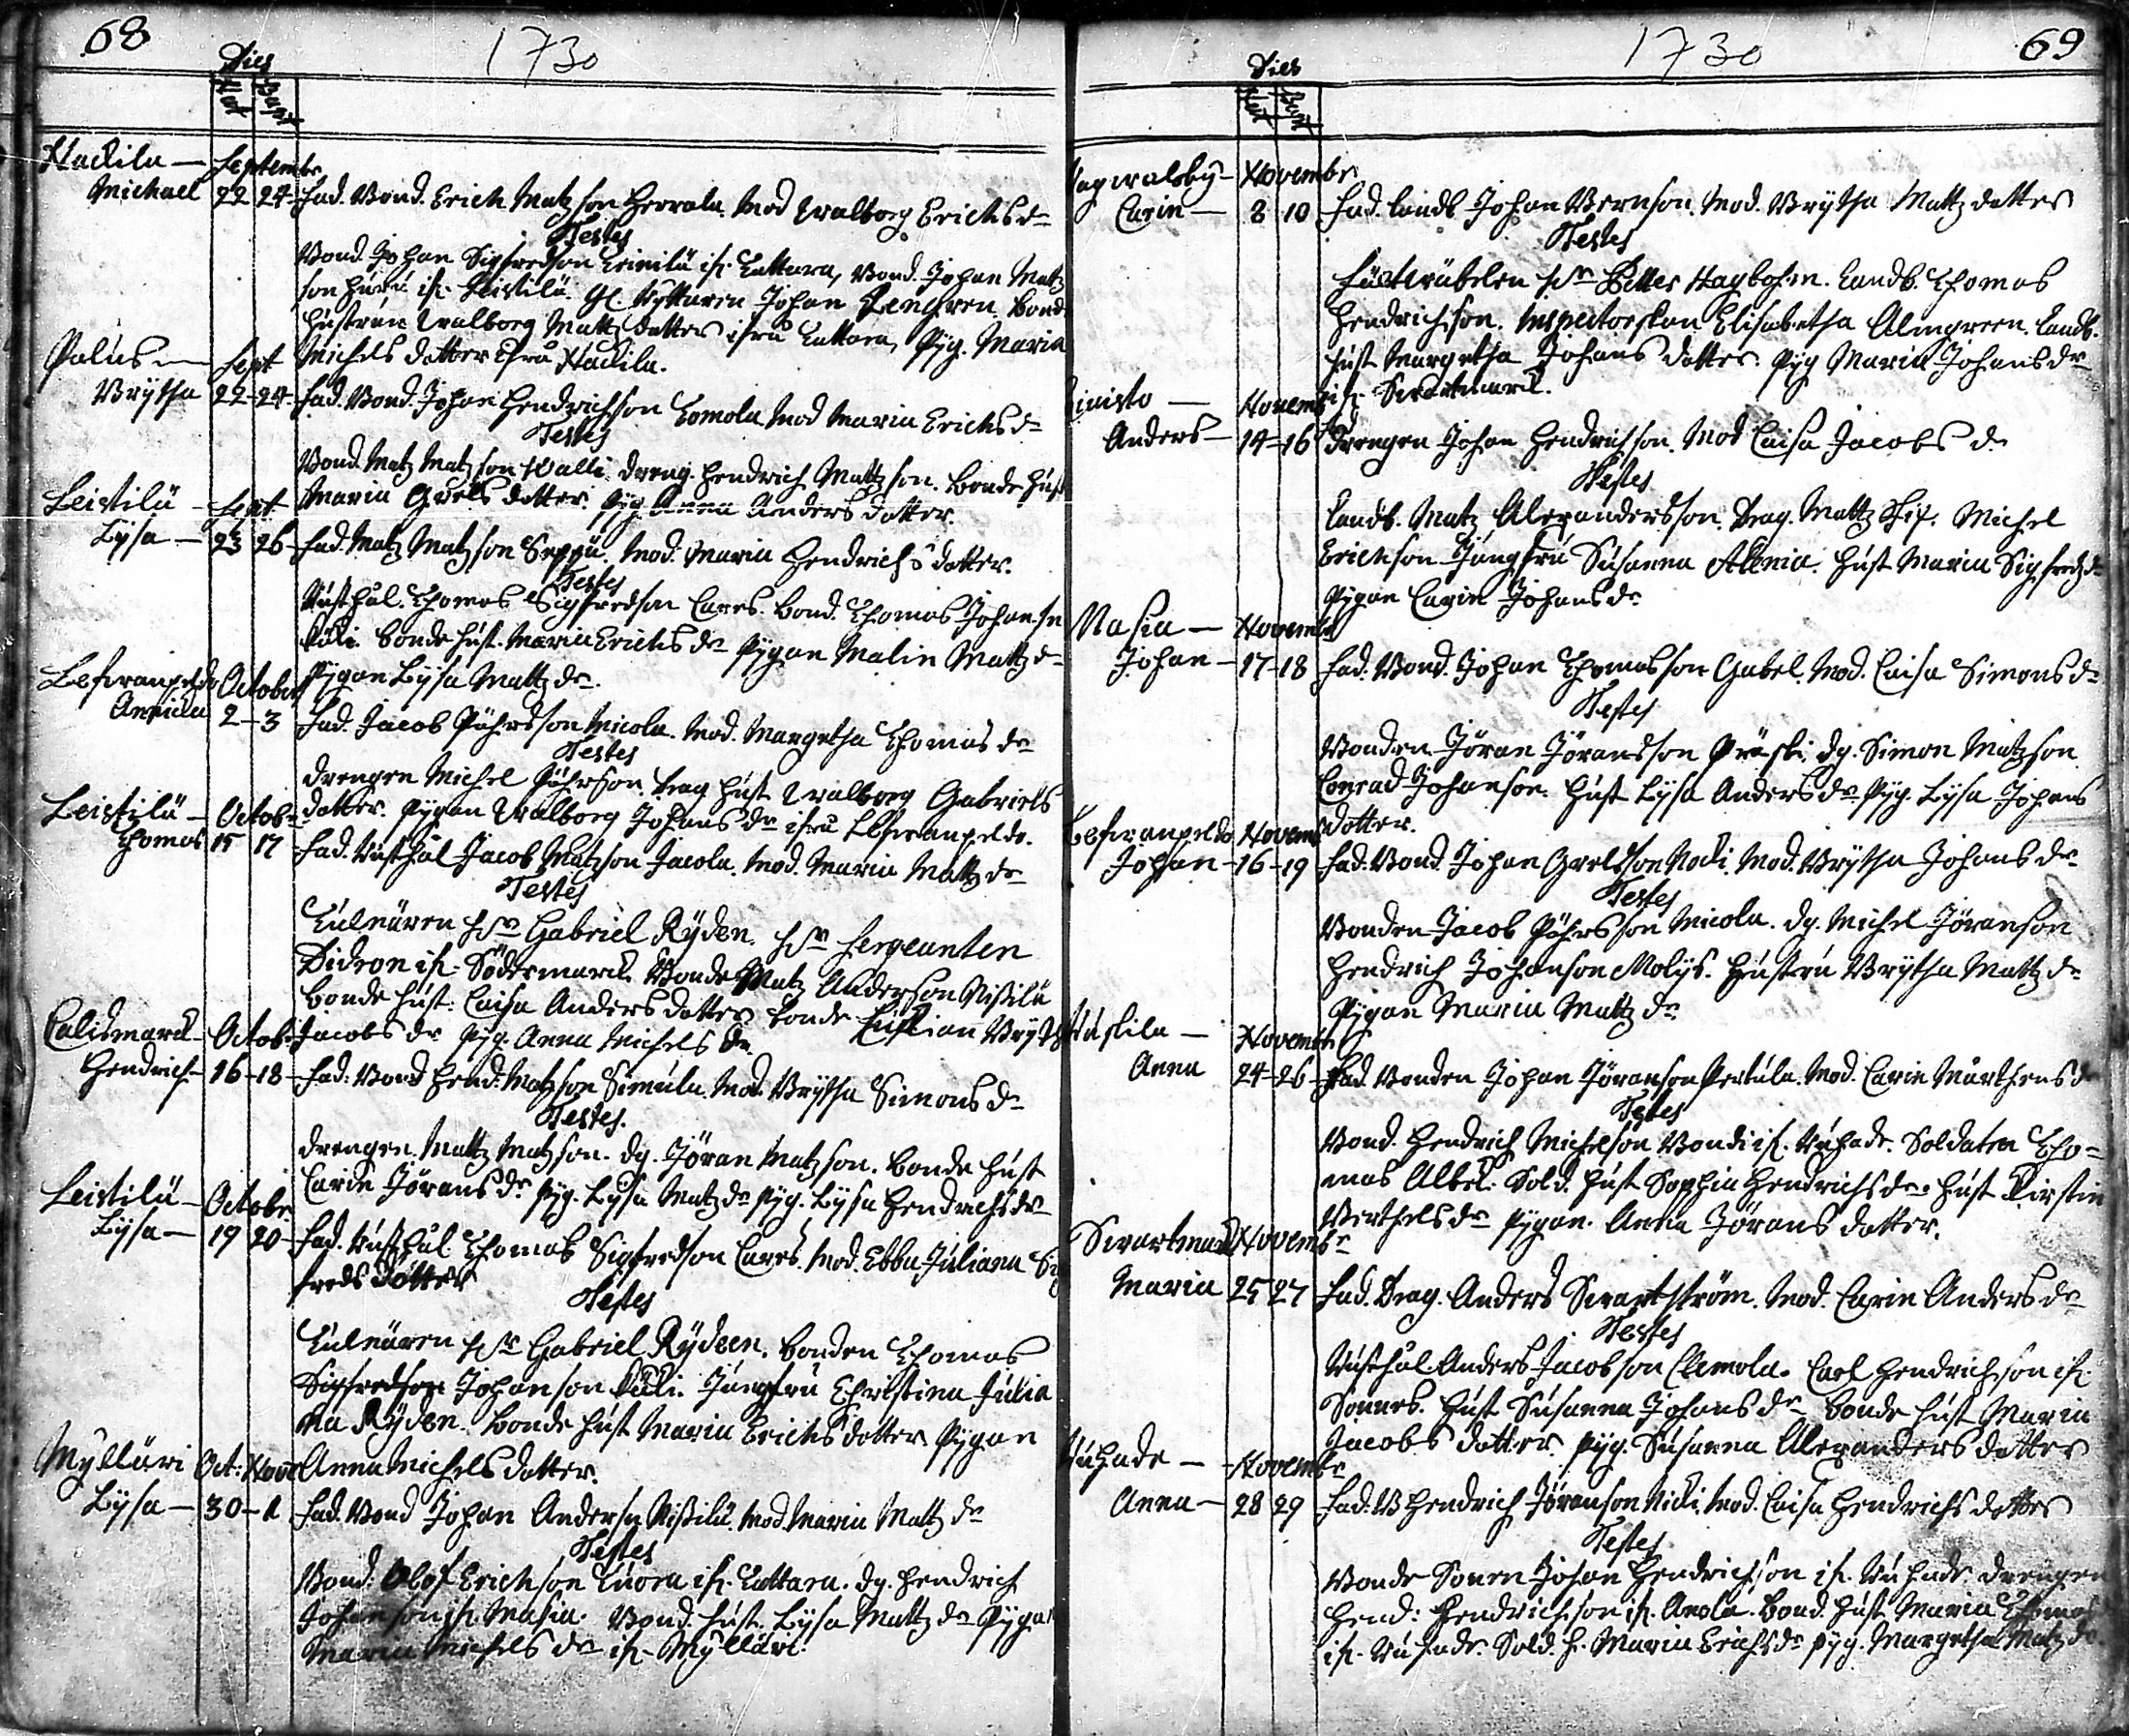 68
1730
Dies
Nat Bapt
Nackila — Septembr
Michael 22 24 Fad. Bond. Erich Matzson Herrala Mod Walborg Erichs dr
Testes
Bond. Johan Sigfredson ifr. Lattara, Bond. Johan Matz
son ifr. Leistilä. Gl. Ryttaren Johan Lengren. Bond
Hustrun Walborg Mattz dotter ifrå Lattara, Pyg. Maria
Michels dotter ifrå Nackila.
Palus — Sept
Brytha 22-24 Fad. Bond. Johan Hendrichson Lomola Mod Maria Erichs dr
Testes
Bond. Matz Matzson Walli. Dreng. Hendrich Mattzson. Bonde Hust
Maria Grels dotter. Pyg. Anna Anders dotter.
Leistilä — Sept
Lysa — 23 26 Fad. Matz Matzson Seppä. Mod. Maria Hendrichs dotter.
Testes
Rusthål. Thomas Sigfredson Cares. Bond. Thomas Johanson
Käki. Bonde Hust. Maria Erichs dr Pygan Malin Mattz dr
Pygan Lysa Mattz dr.
Lefwanpeldo October
Annicka 2-3 Fad. Jacob Påhrsson Micola. Mod. Margetha Thomas dr
Testes
Drengen Michel Påhrson Drag Hust Walborg Gabriels
dotter. Pygan Walborg Johans dr ifrå Lefwanpeldo.
Leistilä — Octobr
Thomas 15 17 Fad. Rusthål Jacob Matzson Jacola. Mod. Maria Mattz dr
Testes
Hr Gabriel Ryden. Hr Sergeanten
Didron ifr. Södermarck Bonde Matz Anderson Nissilä
Bonde Hust. Caisa Anders dotter Bonde Brytha
Jacobs dr Pyg. Anna Michels dr.
Lalismarck — Octobr
Hendrich — 16-18 Fad: Bond Hend. Matzson Simula. Mod. Brytha Simons dr
Testes.
Drengen Mattz Matzson. Dg. Jöran Matzson. Bonde Hust
Carin Jörans dr Pyg. Lysa Matz dr Pyg. Lysa Hendrichs dr
Leistilä — Octobr
Lysa — 19 20 Fad. Rusthål Thomas Sigfredson Cares. Mod. Ebba Juliana Sig
freds dotter
Testes
Hr Gabriel Rydeen. Bonden Thomas
Sigfredson Johanson Käki. Jungfru Christina Julia
na Ryden. Bonde Hust Maria Erichs dotter Pygan
Anna Michels dotter.
Mylläri Oct: Nove
Lysa — 30-1 Fad. Bond Johan Anderson Nissilä. Mod. Maria Mattz dr
Testes
Bond: Olof Erichson Luora ifr. Lattara. Dg. Hendrich
Johanson ifr. Masia. Bond. Hust. Lysa Mattz dr Pygan
Maria Michels dr ifr. Mylläri
69
1730
Dies
Nat Bapt
Novembr
Carin — 8 10 Fad. Landb. Johan Bernson. Mod. Brytha Mattz dotter
Testes
Hr Petter Hagbohm. Landb. Thomas
Hendrichson. Inspectorskan Elisabetha Almgreen. Landb.
Hust Margetha Johans dotter. Pyg Maria Johans dr
ifr. Swartmarck.
Novemb
Anders — 14-16 Drengen Johan Hendrichson. Mod Caisa Jacobs dr
Testes
Landb. Matz Alexandersson. Drag. Mattz Michel
Erichson Jungfru Susanna Alenia. Hust Maria Sigfredz dr
Pygan Carin Johans dr
Masia — Novembr
Johan — 17-18 Fad. Bond. Johan Thomasson Gabel. Mod. Caisa Simons dr
Testes
Bonden Jöran Jöransson Präski, Dg. Simon Matzson
Conrad Johanson. Hust Lysa Anders dr Pyg. Lysa Johans
dotter.
Lefwanpeldo Novemb
Johan — 16-19 Fad. Bond. Johan Grelsson Nocki. Mod. Brytha Johans dr
Testes
Bonden Jacob Påhrsson Micola. Dg. Michel Jöranson
Hendrich Johanson Molys. Hustru Brytha Mattz dr
Pygan Maria Mattz dr
Novembr
Anna 24-26 Fad. Bonden Johan Jöranson Pertula. Mod. Carin Mårthens dr
Testes
Bond. Hendrich Michelson Bondi ifr. Kuhade. Soldaten Tho=
mas Albel. Sold. Hust Sophia Hendrichs dr. Hust Kirstin
Berthels dr Pygan. Anna Jörans dotter.
Swartmarck Novembr
Maria 25 27 Fad. Drag. Anders Swartström. Mod. Carin Anders dr
Testes
Rusthål. Anders Jacobson Clemola. Carl Hendrichson ifr.
Sonnes. Hust Susanna Johans dr Bonde Hust Maria
Jacobs dotter. Pyg. Susanna Alexanders dotter
Kuhade — Novembr
Anna — 28 29 Fad. B Hendrich Jöranson Nicki. Mod. Caisa Hendrichs dotter
Testes
Bonde Sonen Johan Hendrichson ifr. Kuhade Drengen
Hend: Hendrichson ifr. Anola. Bond. Hust Maria Thomas
ifr. Kuhade. Sold. H. Maria Erichs dr Pyg. Margetha Matz dr